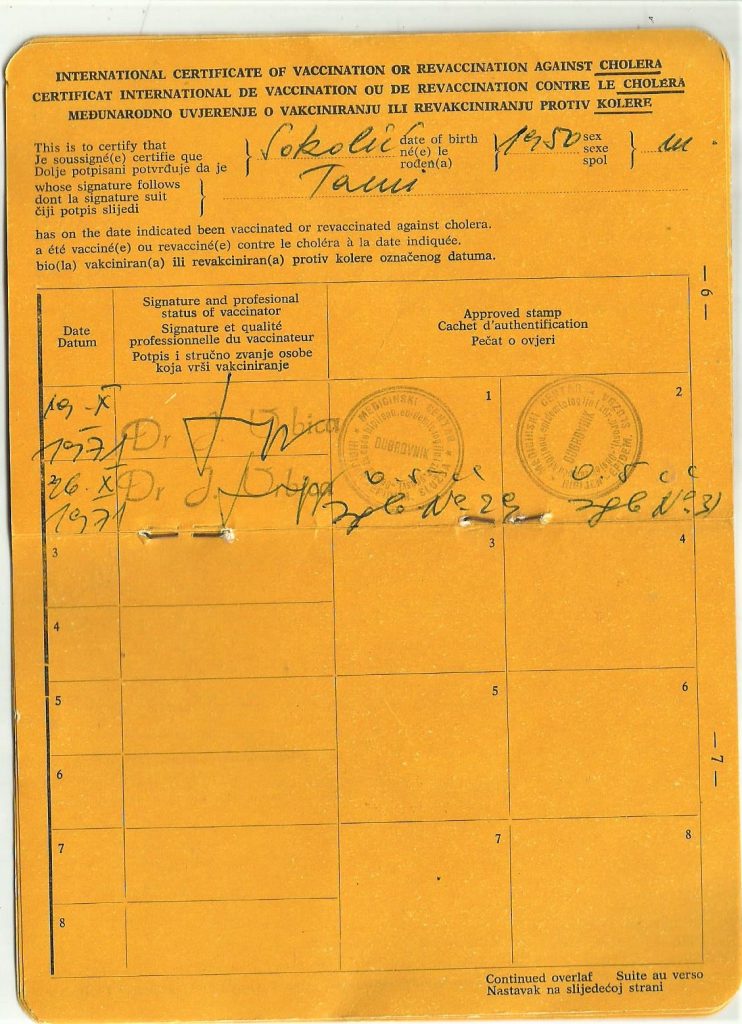 INTERNATIONAL CERTIFICATE OF VACCINATION OR REVACCINATION AGAINST CHOLERA
CERTIFICAT INTERNATIONAL DE VACCINATION OU DE REVACCINATION CONTRE LE CHOLÉRA
MEĐUNARODNO UVJERENJE O VAKCINIRANJU ILI REVAKCINIRANJU PROTIV KOLERE
This is to certify that
Je soussigné(e) certifie que
Dolje potpisani potvrđuje da je
Sokolić
date of birth
né(e) le
rođen(a)
1950
sex
sexe
spol
m
whose signature follows
dont la signature suit
čiji potpis slijedi
has on the date indicated been vaccinated or revaccinated against cholera.
a été vacciné(e) ou revacciné(e) contre le choléra à la date indiquée.
bio(la) vakciniran(a) ili revakciniran(a) protiv kolere označenog datuma.
— 6 —
Date
Datum
Signature and profesional
status of vaccinator
Signature et qualité
professionnelle du vaccinateur
Potpis i stručno zvanje osobe
koja vrši vakciniranje
Approved stamp
Cachet d'authentification
Pečat o ovjeri
19. X
1971
Dr J. Vrbica
1
MEDICINSKI CENTAR
DUBROVNIK
2
MEDICINSKI CENTAR
DUBROVNIK
2
26. X
1971
Dr J. Vrbica
0.5 cc
No 29
0.5 cc
No 31
3
3
4
4
5
5
6
6
— 7 —
7
7
8
8
Continued overlaf Suite au verso
Nastavak na slijedećoj strani